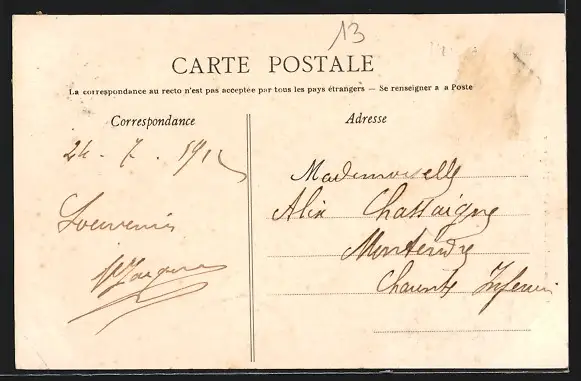 13
CARTE POSTALE
La correspondance au recto n'est pas acceptée par tous les pays étrangers — Se renseigner a a Poste
Correspondance
Adresse
24 - 7 -
Souvenir
Mademoiselle
Alix Chassaigne
Montendre
Charente Inférieure